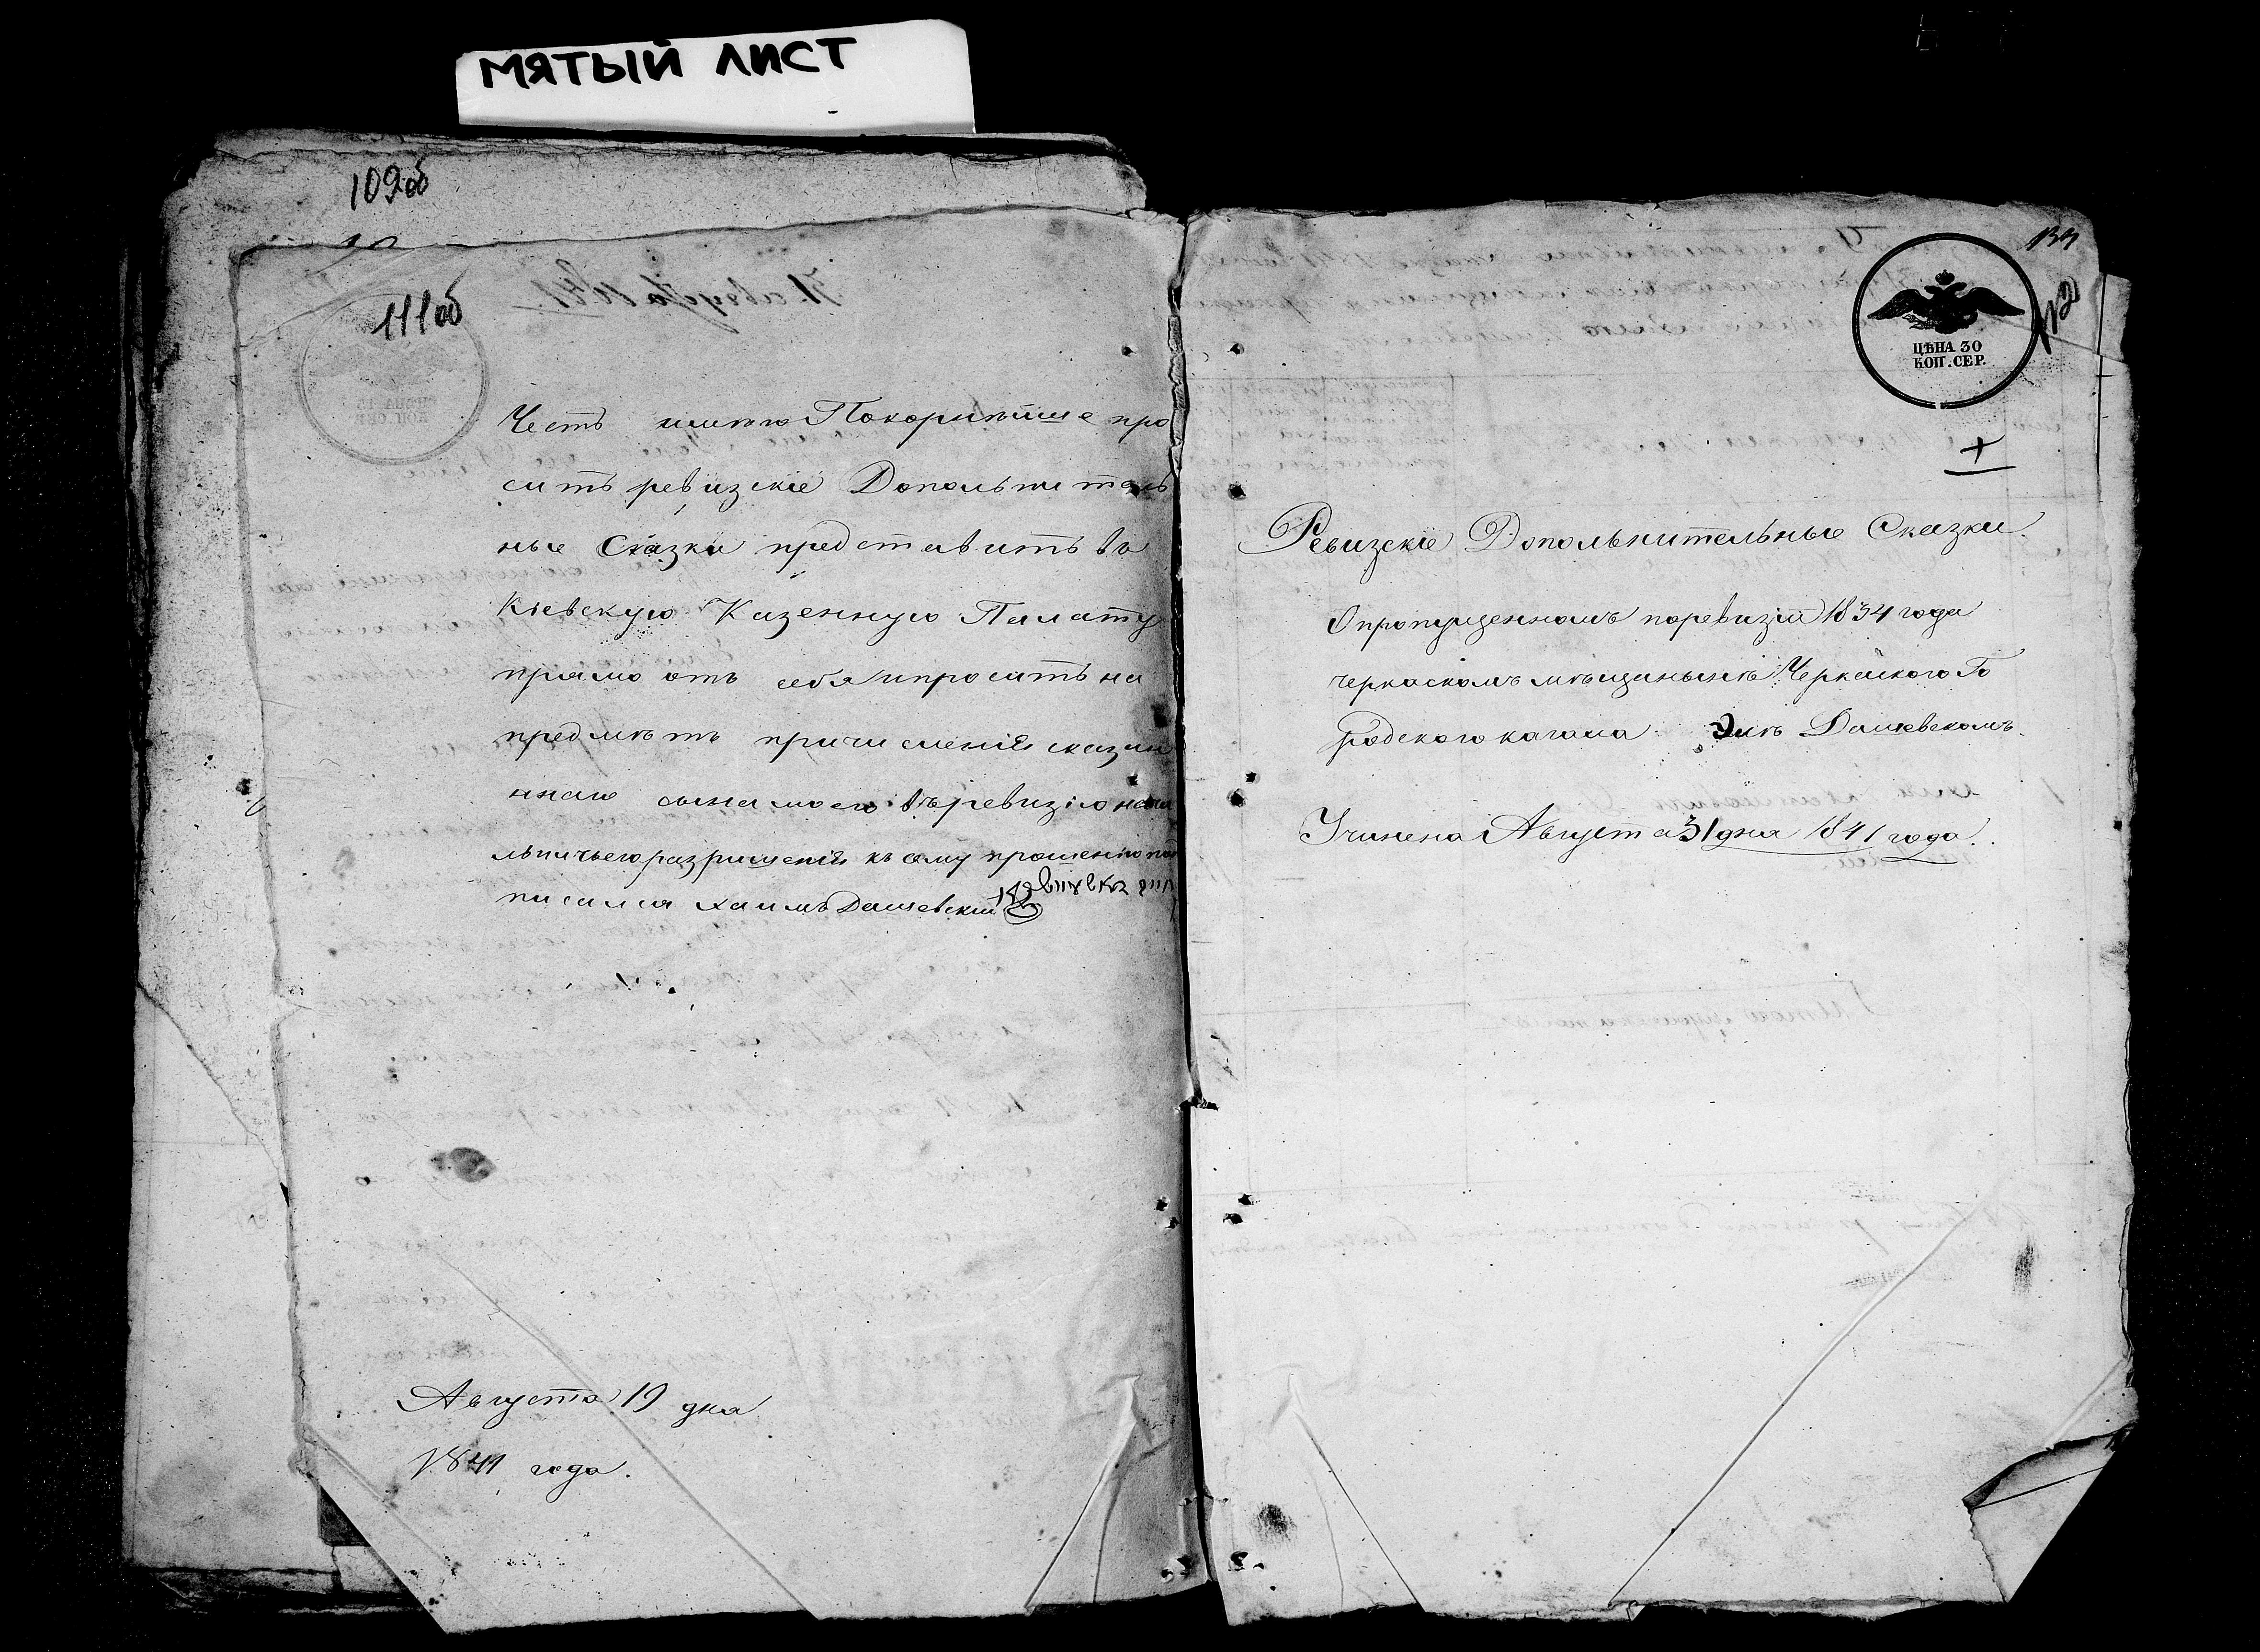 МЯТЫЙ ЛИСТ
109об
111об
Честь имѣю Покорнѣйше про
сить ревизскіе Дополнитель
ные Сказки представить въ
Кіевскую Казенную Палату
прямо отъ себя и просить на
предмѣтъ причисленія сказан
ннаго сына моего въ ревизію
разрѣшенія къ сему прошенію под
писался Хаимъ Дашевскій
Августа 19 дня
1841 года.
133
112
ЦѢНА 30
КОП. СЕР.
+
Ревизскіе Дополънительные Сказки.
О пропущенномъ поревизіи 1834 года
черкаскомъ мѣщанынѣ Черкаского Го
родского кагала Элѣ Дашевскомъ.
Учинена Августа 31 дня 1841 года.